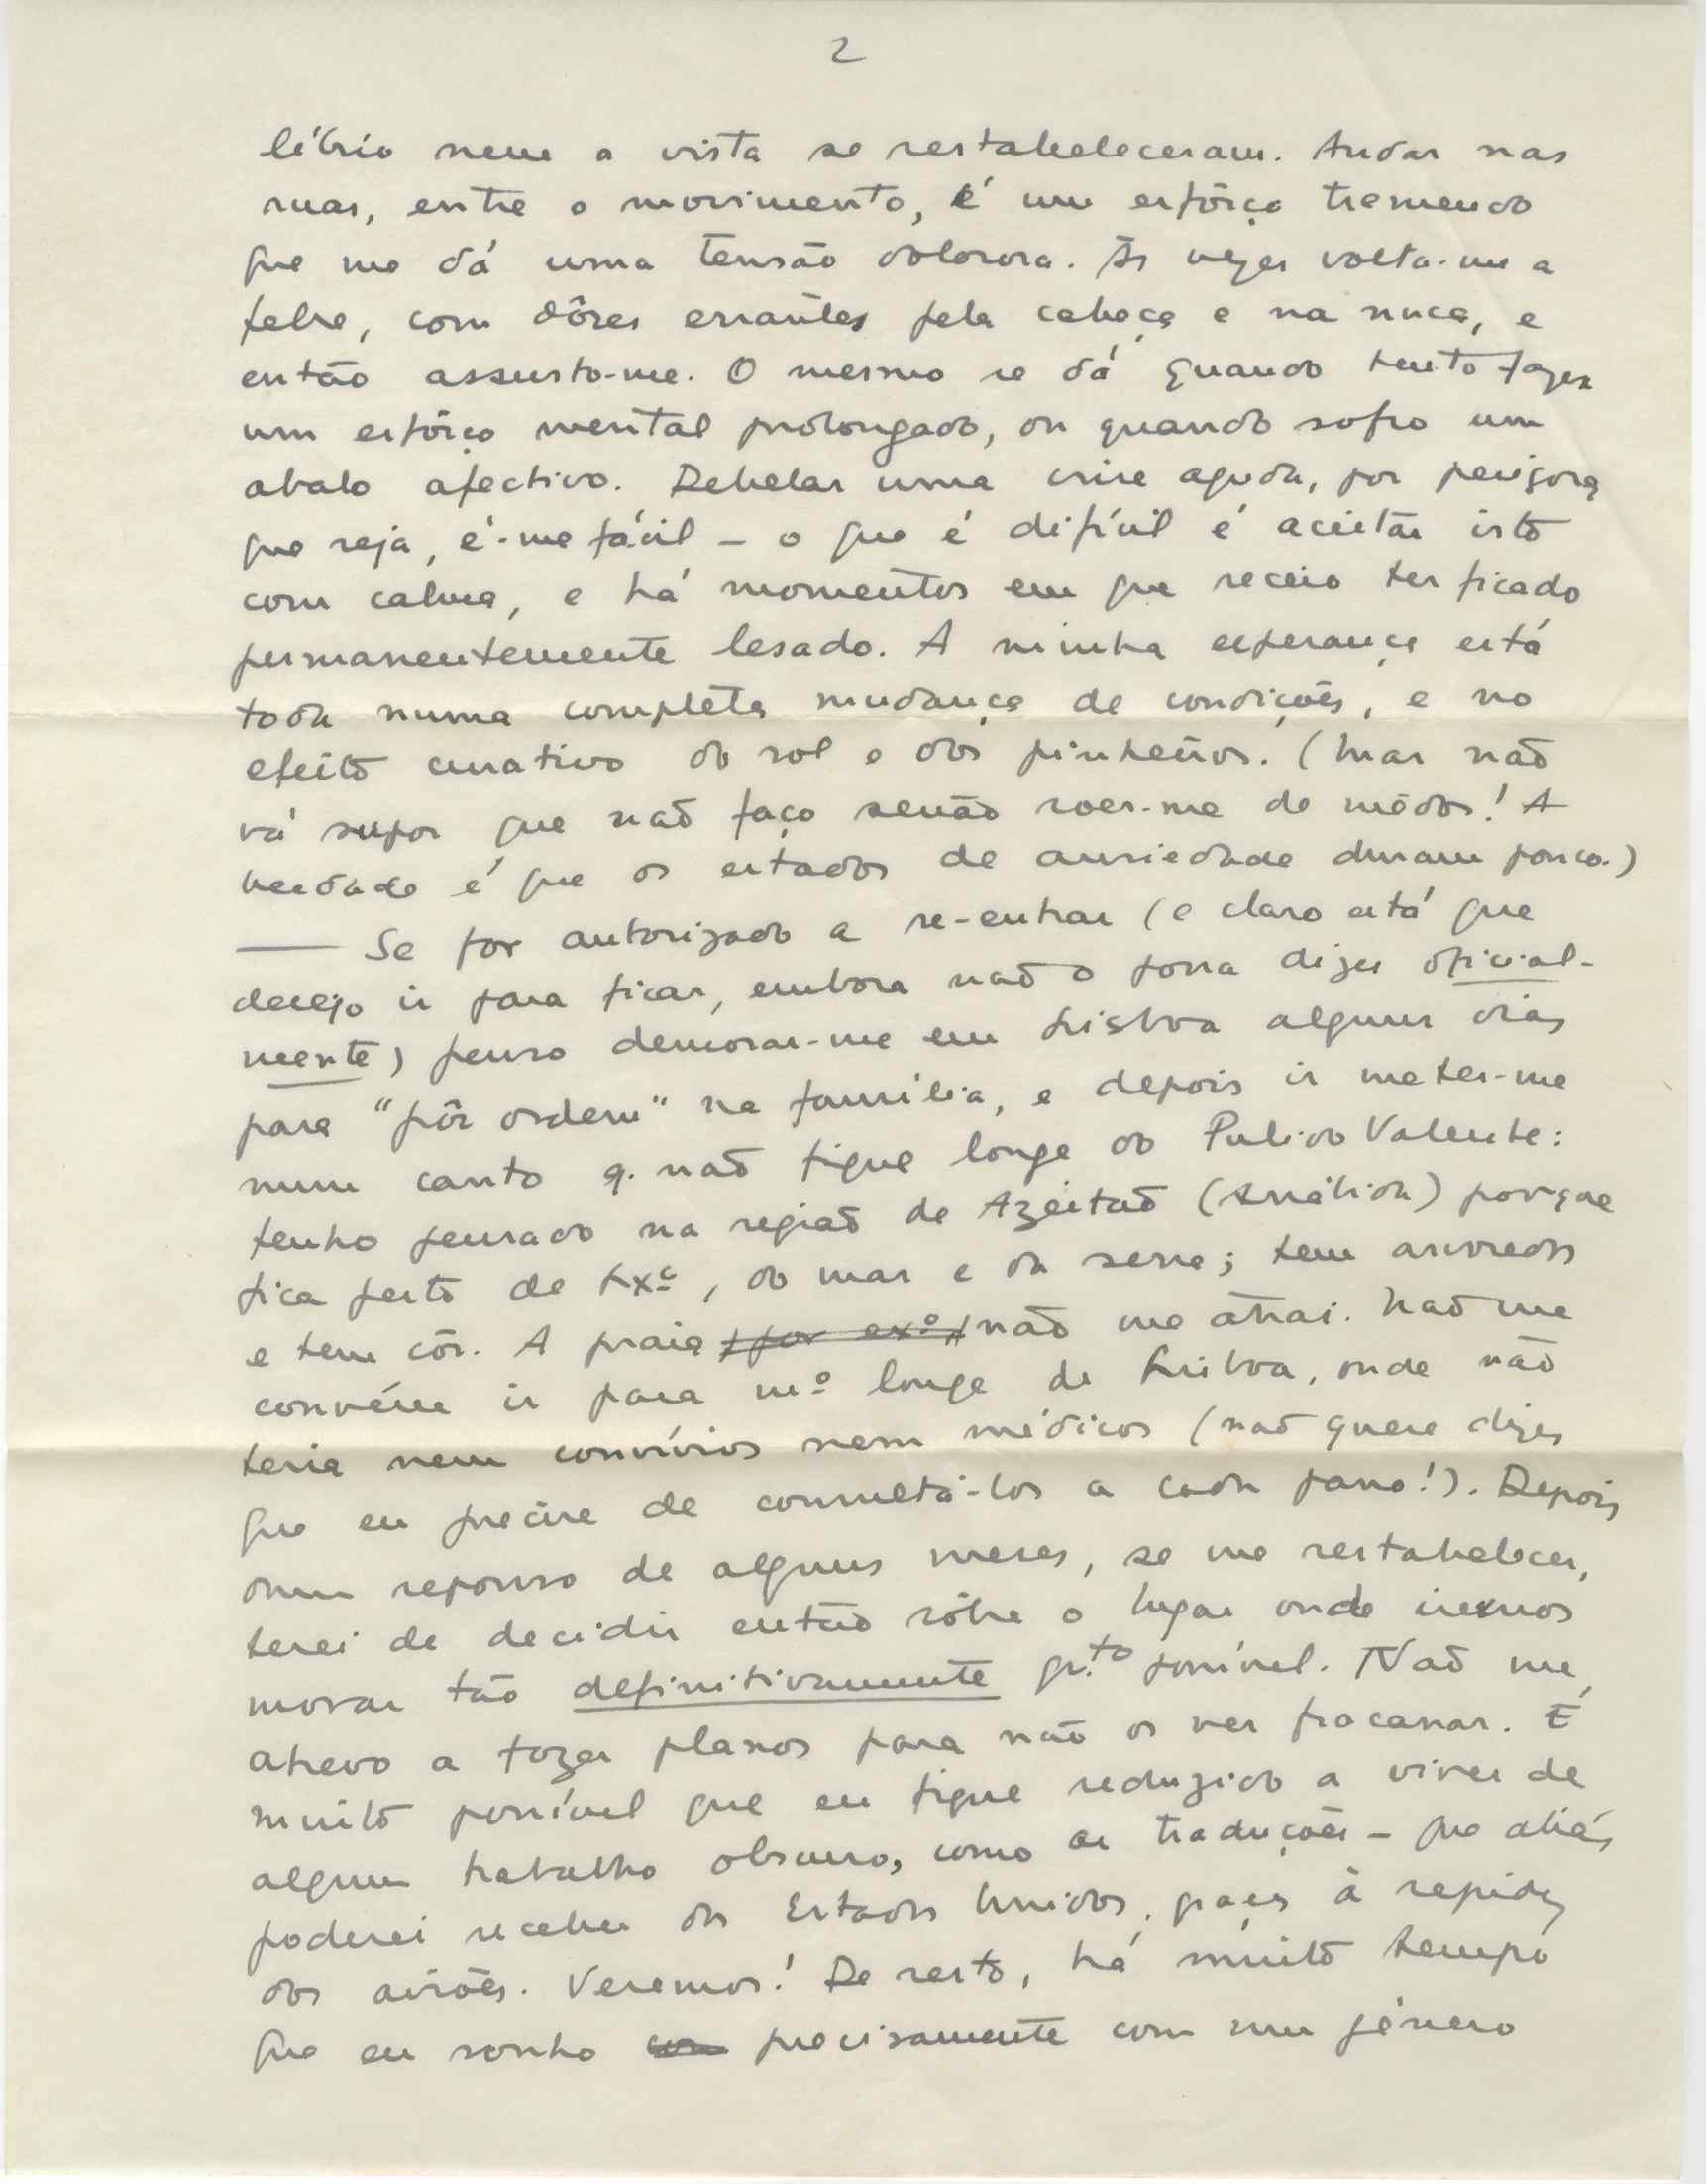 2
líbrio nem a vista se restabeleceram. Andar nas
ruas, entre o movimento, é um esfôrço tremendo
que me dá uma tensão dolorosa. Às vezes volta-me a
febre, com dôres errantes pela cabeça e na nuca, e
então assusto-me. O mesmo se dá quando tento fazer
um esfôrço mental prolongado, ou quando sofro um
abalo afectivo. Debelar uma crise aguda, por perigosa
que seja, é-me fácil – o que é difícil é aceitar isto
com calma, e há momentos em que receio ter ficado
permanentemente lesado. A minha esperança está
toda numa completa mudança de condições, e no
efeito curativo do sol e dos pinheiros. (Mas não
vá supor que não faço senão roer-me de mêdos! A
verdade é que os estados de ansiedade duram pouco.)
— Se for autorizado a re-entrar (e claro está que
desejo ir para ficar, embora não o possa dizer oficial-
mente) penso demorar-me em Lisboa alguns dias
para "pôr ordem" na família, e depois ir meter-me
num canto q. não fique longe do Pulido Valente:
tenho pensado na região de Azeitão (Arrábida) porque
fica perto de Lxª, do mar e da serra; tem arvoredos
e tem côr. A praia, por exº, não me atrai. Não me
convém ir para mº longe de Lisboa, onde não
teria nem convívios nem médicos (não quere dizer
que eu precise de consultá-los a cada passo!). Depois
dum repouso de alguns meses, se me restabelecer,
terei de decidir então sôbre o lugar onde iremos
morar tão definitivamente qto possível. Não me
atrevo a fazer planos para não os ver fracassar. É
muito possível que eu fique reduzido a viver de
algum trabalho obscuro, como as traduções – que aliás
poderei receber dos Estados Unidos, graças à rapidez
dos aviões. Veremos! De resto, há muito tempo
que eu sonho com precisamente com um género